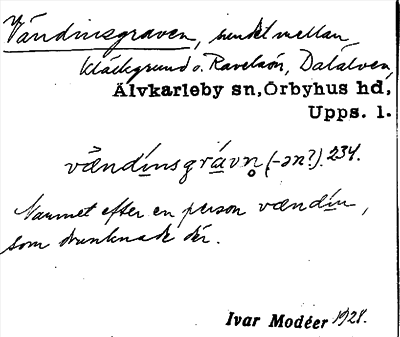 Vändinsgraven, sundet mellan
Kläckgrund o. Ravelsön, Dalälven,
Älvkarleby sn, Örbyhus hd,
Upps. l.
vändi̲nsgrà̲vn̥ (-ən?). 234.
Namnet efter en person vændi̲n,
som drunknade där.
Ivar Modéer 1928.